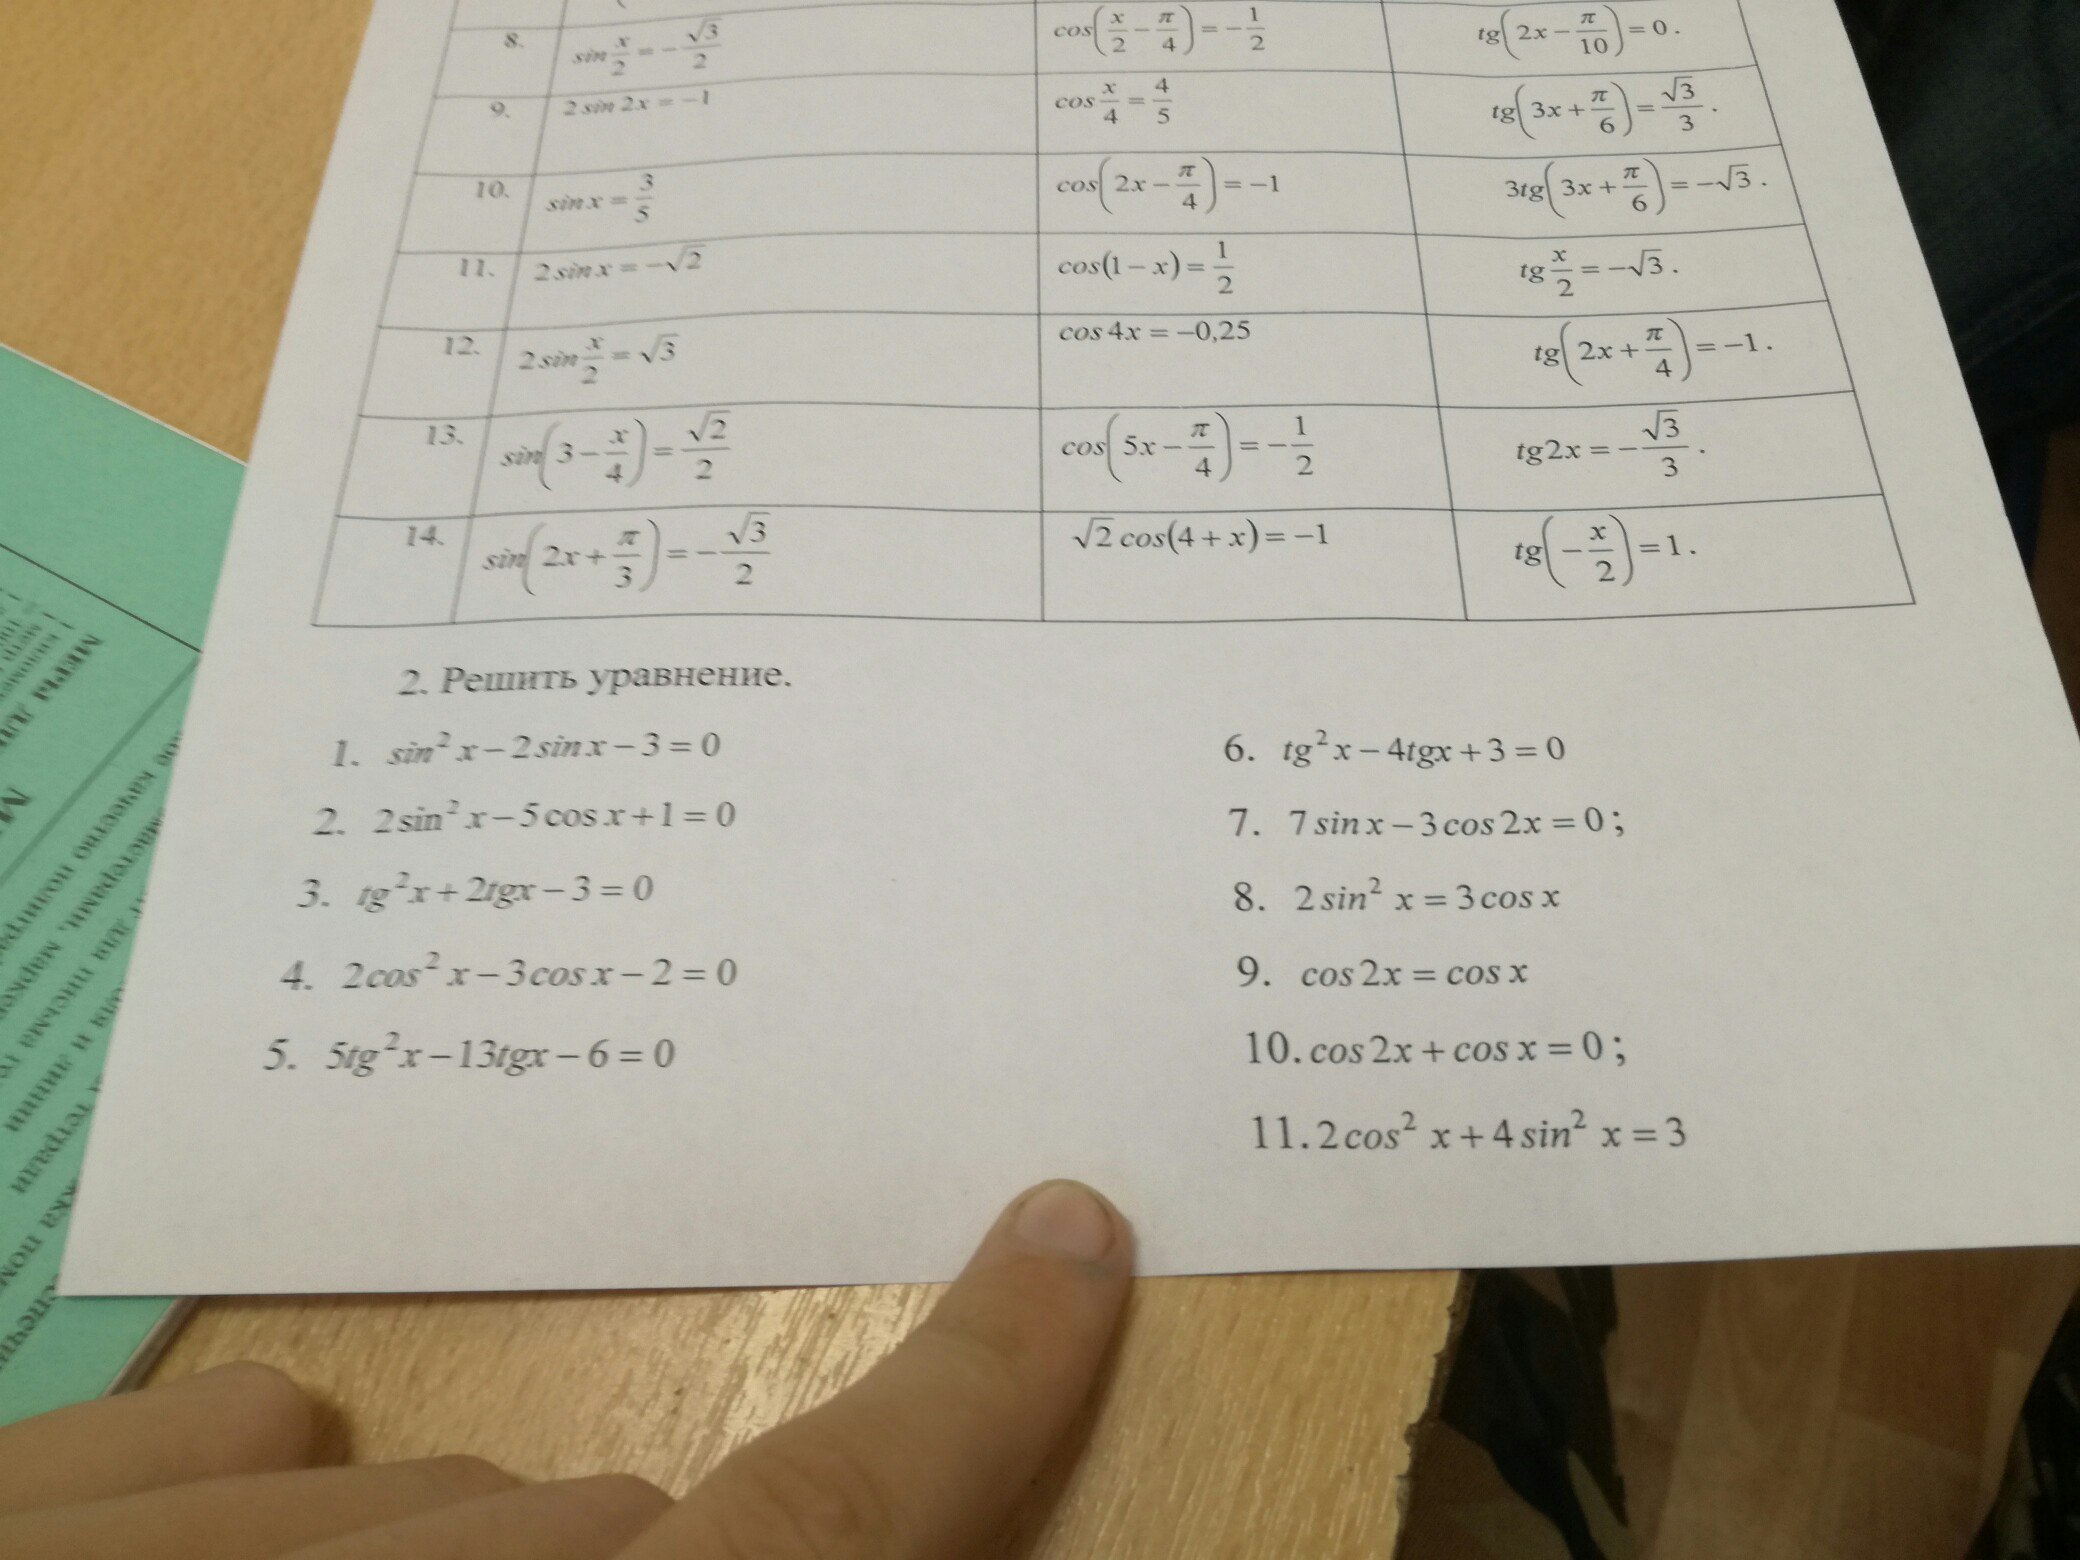 8. sin x/2 = -√3/2 cos(x/2 - π/4) = -1/2 tg(2x - π/10) = 0.
9. 2 sin 2x = -1 cos x/4 = 4/5 tg(3x + π/6) = √3/3.
10. sin x = 3/5 cos(2x - π/4) = -1 3tg(3x + π/6) = -√3.
11. 2 sin x = -√2 cos(1 - x) = 1/2 tg x/2 = -√3.
12. 2 sin x/2 = √3 cos 4x = -0,25 tg(2x + π/4) = -1.
13. sin(3 - x/4) = √2/2 cos(5x - π/4) = -1/2 tg2x = -√3/3.
14. sin(2x + π/3) = -√3/2 √2 cos(4 + x) = -1 tg(-x/2) = 1.
2. Решить уравнение.
1. sin² x - 2 sin x - 3 = 0
2. 2 sin² x - 5 cos x + 1 = 0
3. tg²x + 2tgx - 3 = 0
4. 2cos² x - 3cos x - 2 = 0
5. 5tg²x - 13tgx - 6 = 0
6. tg²x - 4tgx + 3 = 0
7. 7 sin x - 3 cos 2x = 0;
8. 2 sin² x = 3 cos x
9. cos 2x = cos x
10. cos 2x + cos x = 0;
11. 2 cos² x + 4 sin² x = 3